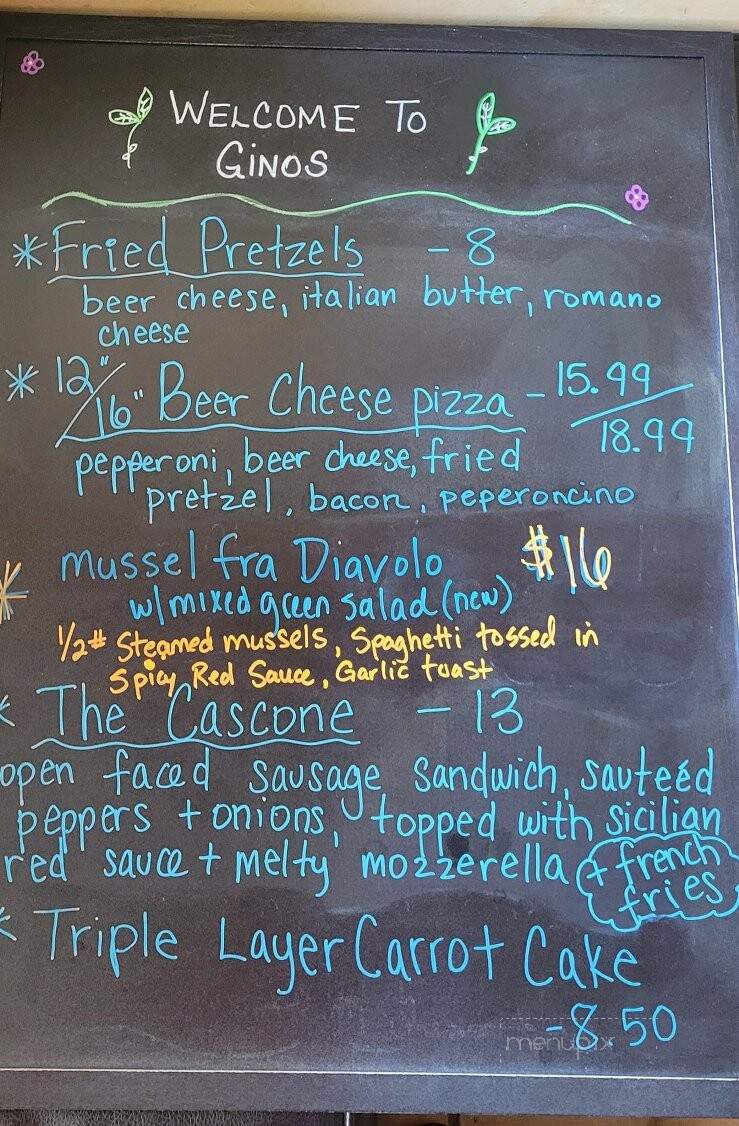 WELCOME TO
GINOS
* Fried Pretzels - 8
beer cheese, italian butter, romano
cheese
* 12"/16" Beer Cheese pizza - 15.99/18.99
pepperoni, beer cheese, fried
pretzel, bacon, peperoncino
* mussel fra Diavolo $16
w/ mixed green salad (new)
1/2# Steamed mussels, Spaghetti tossed in
Spicy Red Sauce, Garlic toast
* The Cascone - 13
open faced sausage sandwich, sauteéd
peppers + onions, topped with sicilian
red sauce + melty mozzerella + french
fries
* Triple Layer Carrot Cake
- 8.50
menupix